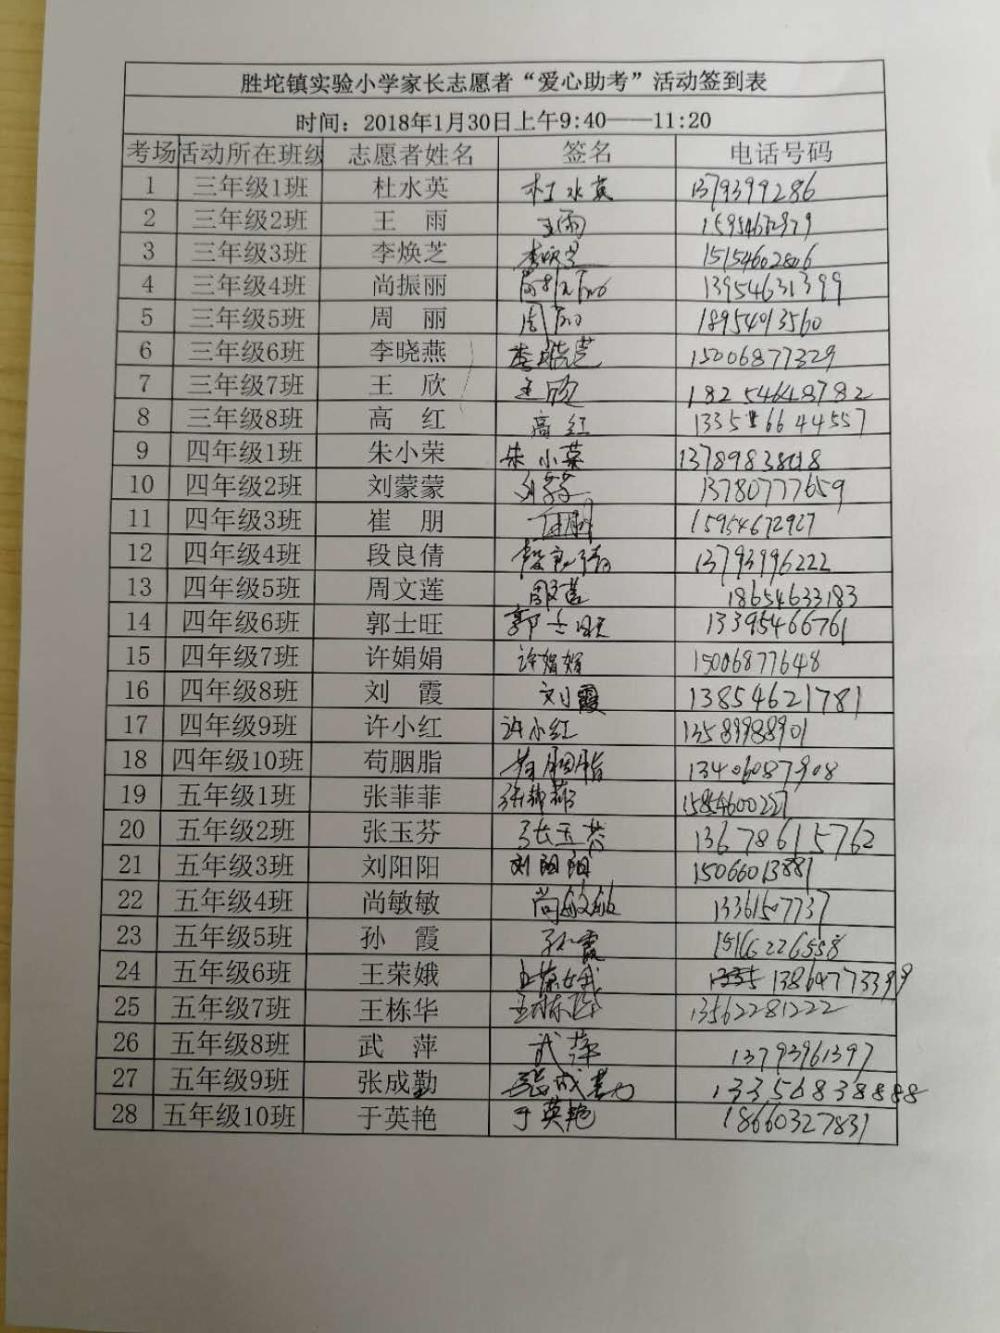 胜坨镇实验小学家长志愿者“爱心助考”活动签到表
时间：2018年1月30日上午9:40——11:20
考场 活动所在班级 志愿者姓名 签名 电话号码
1 三年级1班 杜水英 杜水英 1379399286
2 三年级2班 王 雨 王雨
3 三年级3班 李焕芝 李焕芝 15154602806
4 三年级4班 尚振丽 尚振丽 13954631399
5 三年级5班 周 丽 周丽 18954013560
6 三年级6班 李晓燕 李晓燕 15006877329
7 三年级7班 王 欣 王欣 182546448782
8 三年级8班 高 红 高红
9 四年级1班 朱小荣 朱小荣
10 四年级2班 刘蒙蒙 刘蒙蒙 13780777659
11 四年级3班 崔 朋 崔朋 15954672927
12 四年级4班 段良倩 段良倩 13793996222
13 四年级5班 周文莲 周文莲 18654633183
14 四年级6班 郭士旺 郭士旺 13395466761
15 四年级7班 许娟娟 许娟娟 15006877648
16 四年级8班 刘 霞 刘霞 13854621781
17 四年级9班 许小红 许小红 13589988901
18 四年级10班 苟胭脂 苟胭脂 13406087908
19 五年级1班 张菲菲 张菲菲
20 五年级2班 张玉芬 张玉芬 13678615762
21 五年级3班 刘阳阳 刘阳阳 15066013881
22 五年级4班 尚敏敏 尚敏敏 1336157737
23 五年级5班 孙 霞 孙霞 15166226558
24 五年级6班 王荣娥 王荣娥 13864773399
25 五年级7班 王栋华 王栋华 13562281222
26 五年级8班 武 萍 武萍 13793961397
27 五年级9班 张成勤 张成勤 13356838888
28 五年级10班 于英艳 于英艳 18660327831